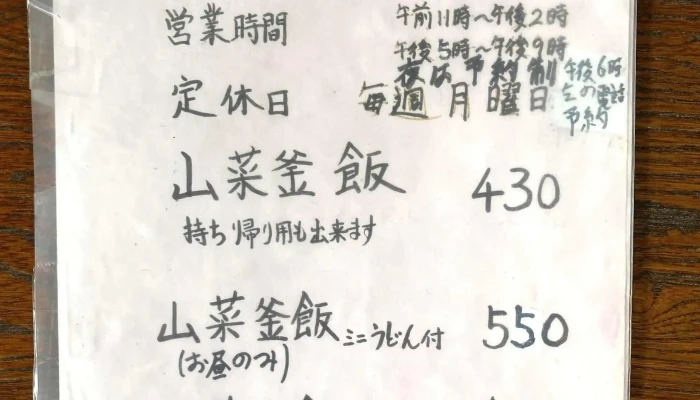 営業時間 午前11時～午後2時
午後5時～午後9時
夜は予約制
午後6時
定休日 毎週月曜日
電話
予約
山菜釜飯 430
持ち帰り用も出来ます
山菜釜飯 ミニうどん付 550
(お昼のみ)